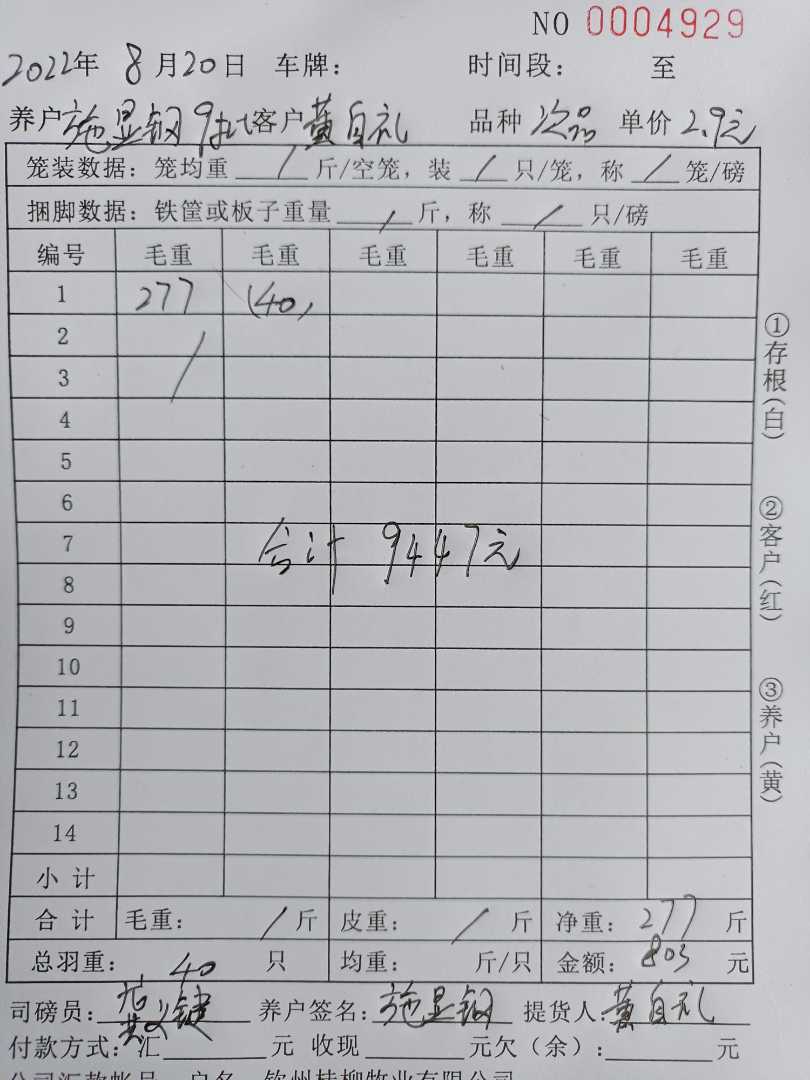 NO 0004929
2022年 8月20日 车牌： 时间段： 至
养户 施显钢 9批 客户 黄自礼 品种 次品 单价 2.9元
笼装数据：笼均重 / 斤/空笼，装 / 只/笼，称 / 笼/磅
捆脚数据：铁筐或板子重量 / 斤，称 / 只/磅
编号 毛重 毛重 毛重 毛重 毛重 毛重
1 277 (40)
2 /
3
4
5
6
7 合计 9447元
8
9
10
11
12
13
14
小计
合计 毛重： / 斤 皮重： / 斤 净重：277 斤
总羽重： 40 只 均重： 斤/只 金额：803 元
司磅员： 养户签名：施显钢 提货人：黄自礼
付款方式：汇 元 收现 元欠（余）： 元
公司汇款帐号 户名 钦州桂柳牧业有限公司
①存根（白）
②客户（红）
③养户（黄）